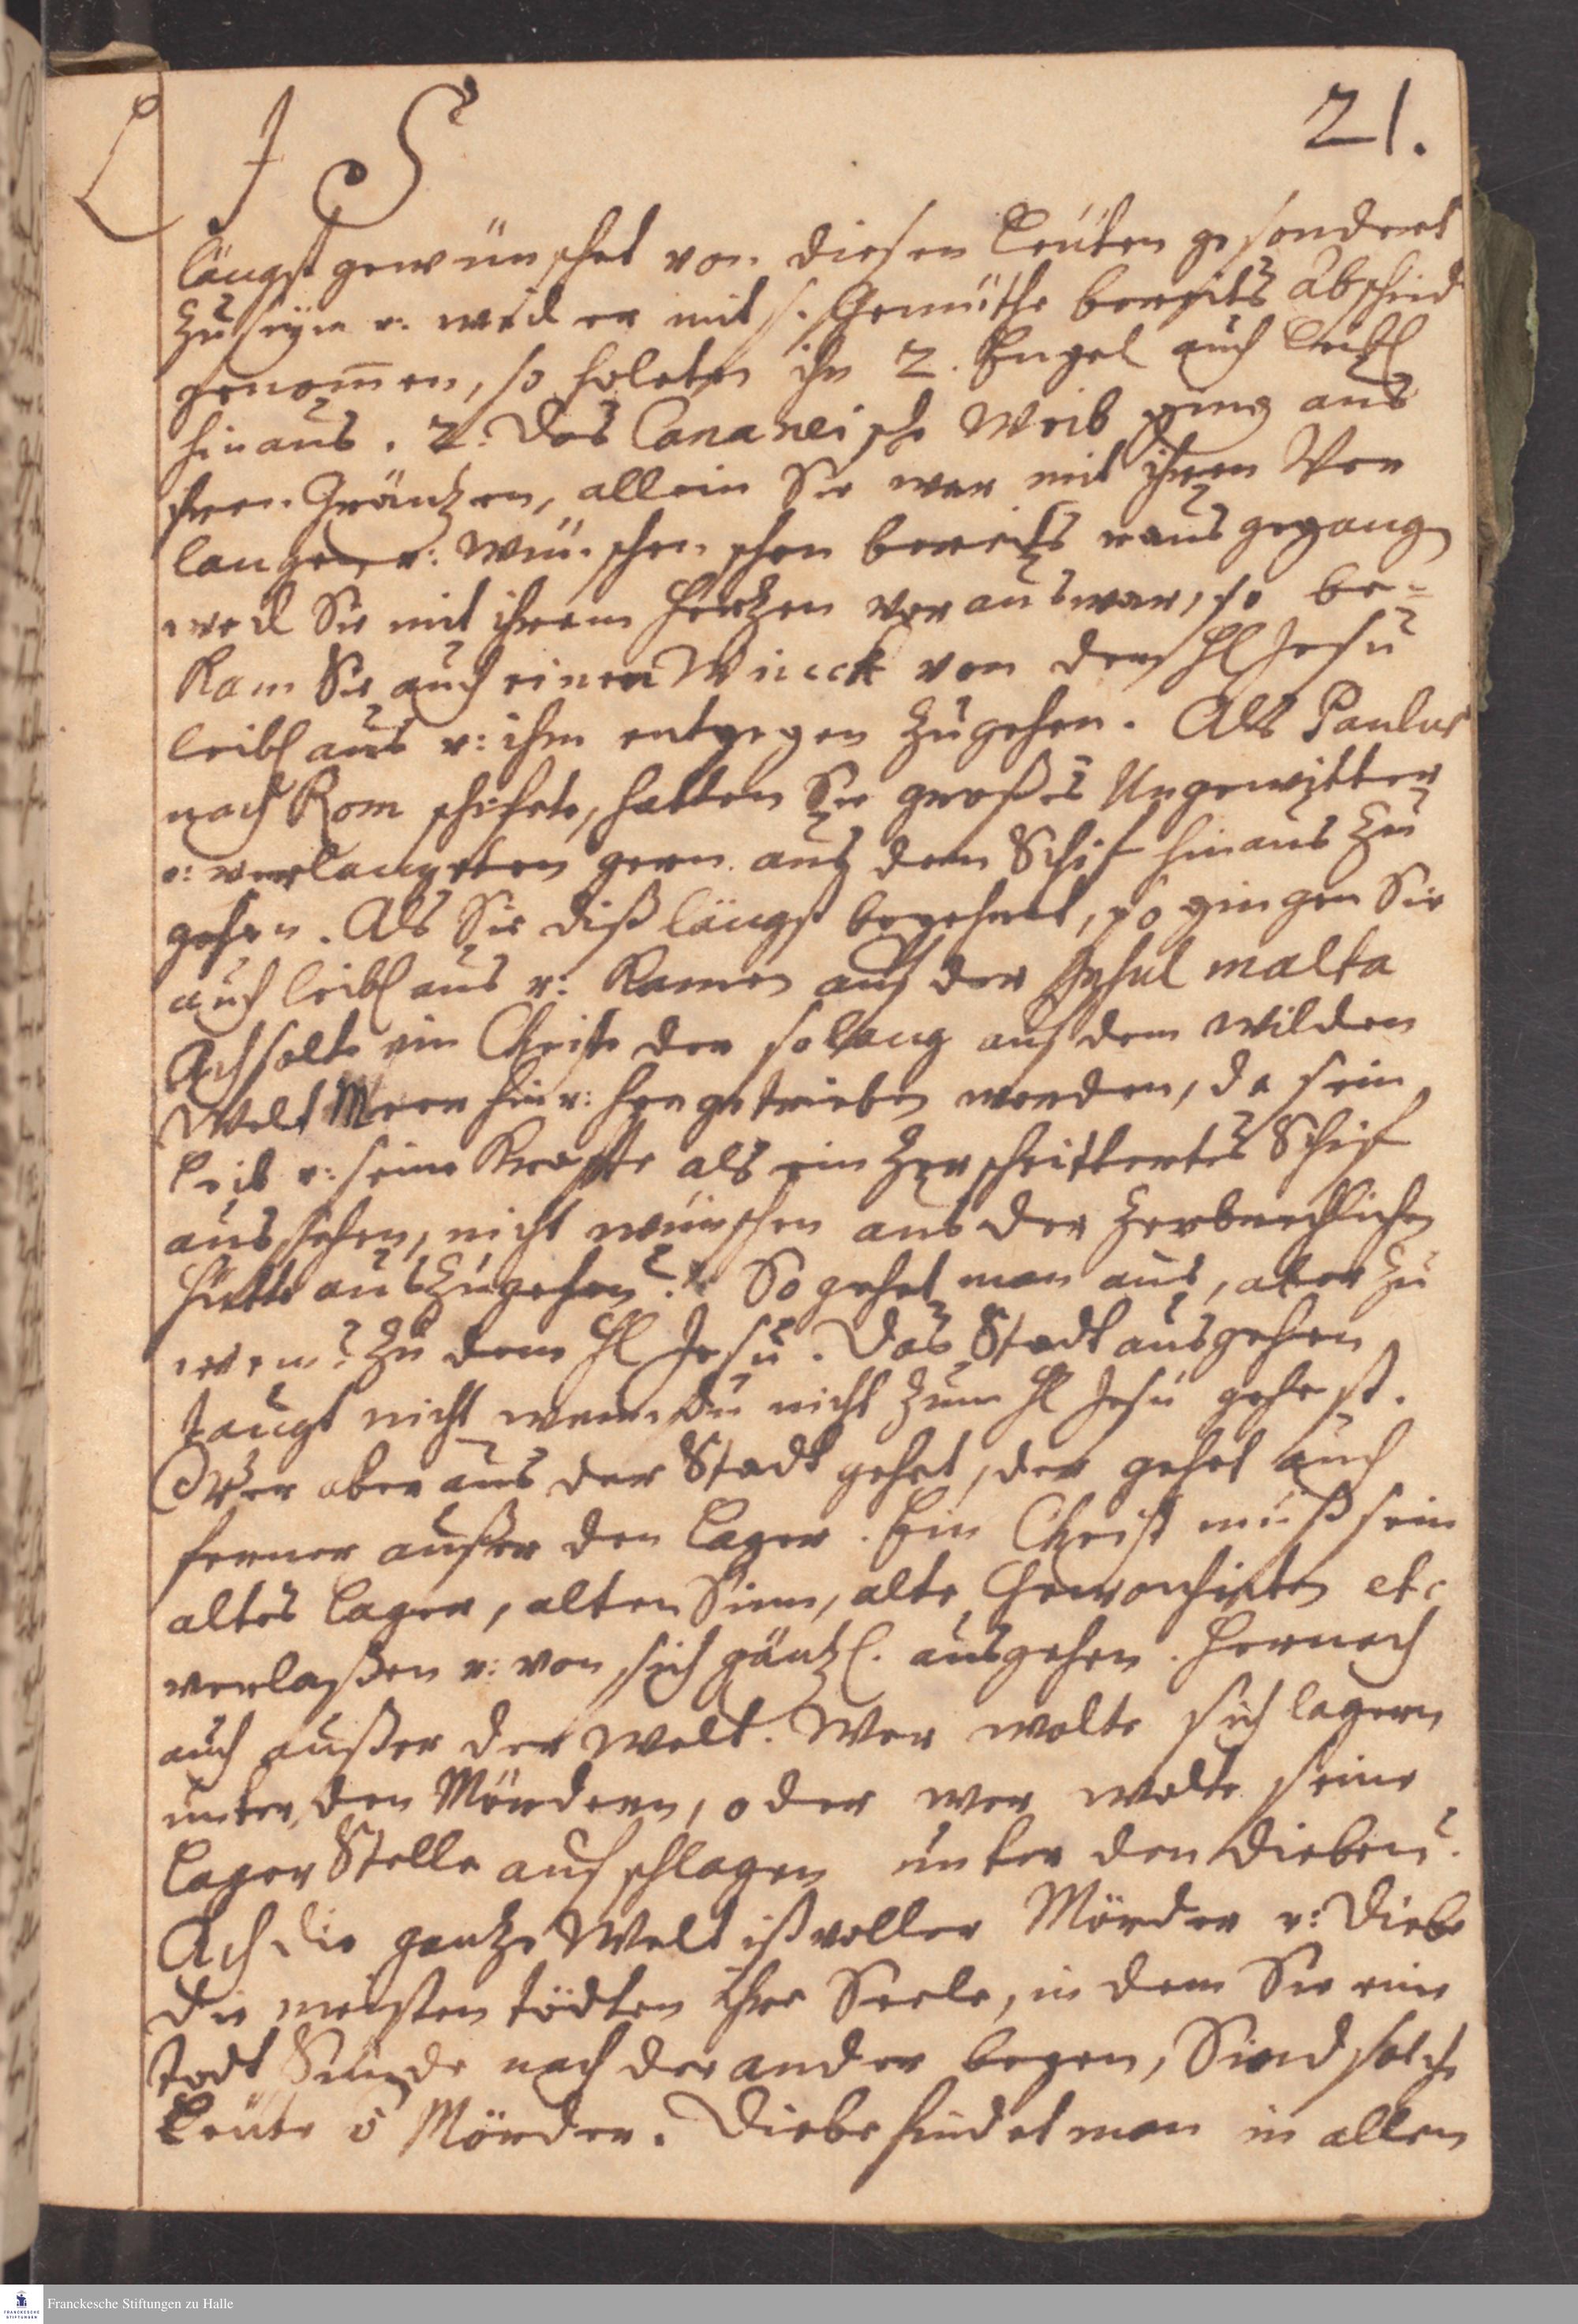 L J S
21.
längst gewünschet von diesen Leüten gesondert
zu seÿn v: weil er mit s. Gemüthe bereits Abschied
genom̄en, so holeten ihn 2. Engel auch leibl
hinaus. 2. Das Cananeische Weib ging aus
ihren Gräntzen, allein Sie war mit ihren Ver
langen v: Wünschen schon bereits raus gegang
weil Sie mit ihrem Hertzen voraus war, so be-
kam Sie auch einen Winck von dem Hl Jesu
leibl aus v: ihm entgegen zugehen. Als Paulus
nach Rom schifete, hatten Sie großes Ungewitter
v: verlangeten gern aus dem Schif hinaus zu
gehen. Als Sie diß längst begehret, so gingen Sie
auch leibl aus v: kamen auf der Insul malta
Ach solte ein Christe der so lang auf dem wilden
Welt Meer hin v: her getrieben worden, da sein
Leib v: seine Kräffte als ein zerscheittertes Schif
aussehen, nicht wünschen aus der zerbrechlichen
Hütte auszugehen? So gehet man aus, aber zu
wem? Zu dem Hl Jesu. Das Stadt ausgehen
taugt nicht wenn du nicht zum Hl Jesu gehest.
Wer aber aus der Stadt gehet, der gehet auch
ferner außer den Lager. Ein Christ muß sein
altes Lager, alten Sinn, alte Gewonheiten etc
verlaßen v: von sich gäntzl. ausgehen. Hernach
auch außer der Welt. Wer wolte sich lagern
unter den Mördern, oder wer wolte seine
Lager Stelle aufschlagen unter den Dieben?
Ach die gantze Welt ist voller Mörder v: Diebe
die meisten tödten ihre Seele, in dem Sie eine
todt Sünde nach der ander begen, Sind solche
Leüte ō Mörder. Diebe findet man in allen
Franckesche Stiftungen zu Halle